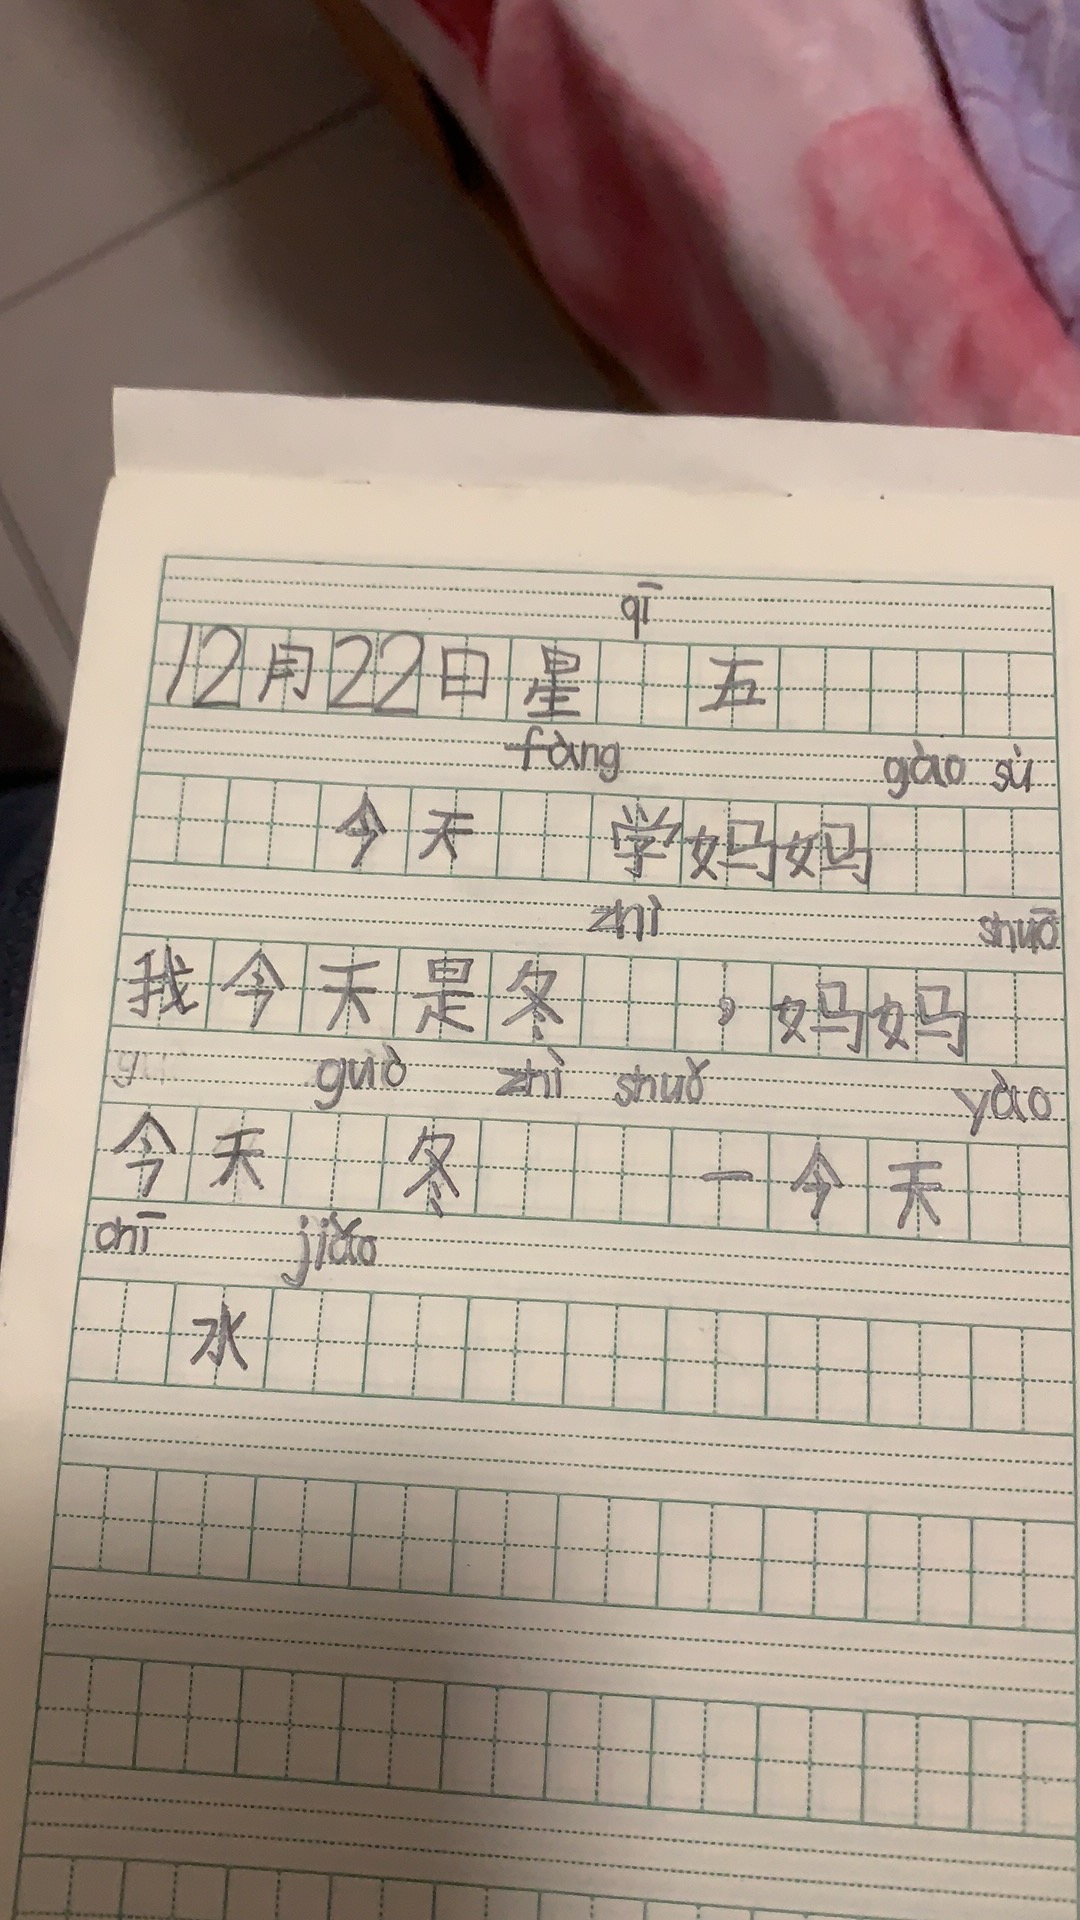 qī
12月22日星 五
fàng gào sù
今天 学妈妈
zhì shuō
我今天是冬 ，妈妈
guò zhì shuǒ yào
今天 冬 一今天
chī jiǎo
水